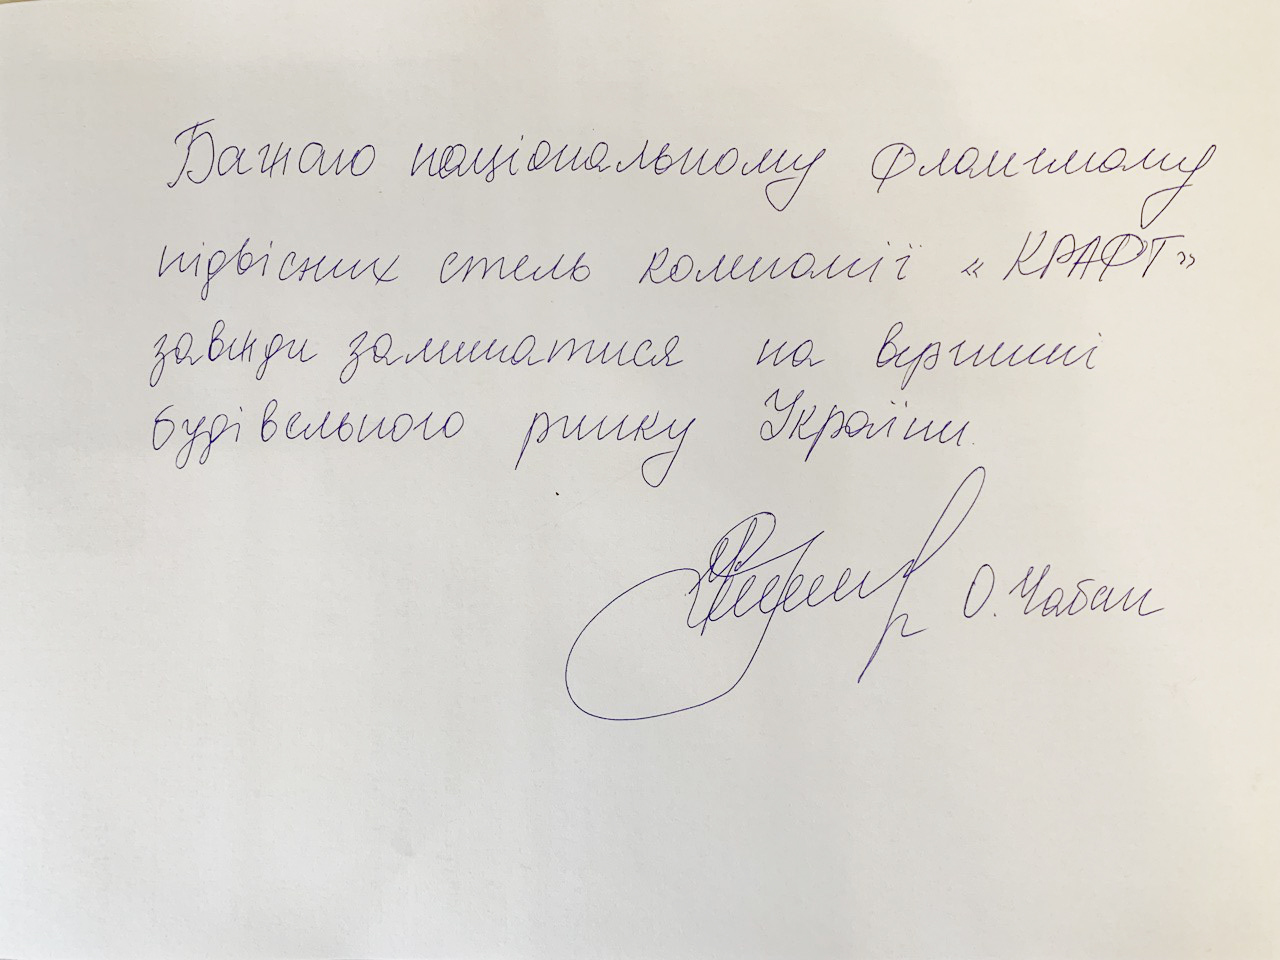 Бажаю національному флагману
підвісних стель компанії «КРАФТ»
завжди залишатися на вершині
будівельного ринку України.
О. Чабан